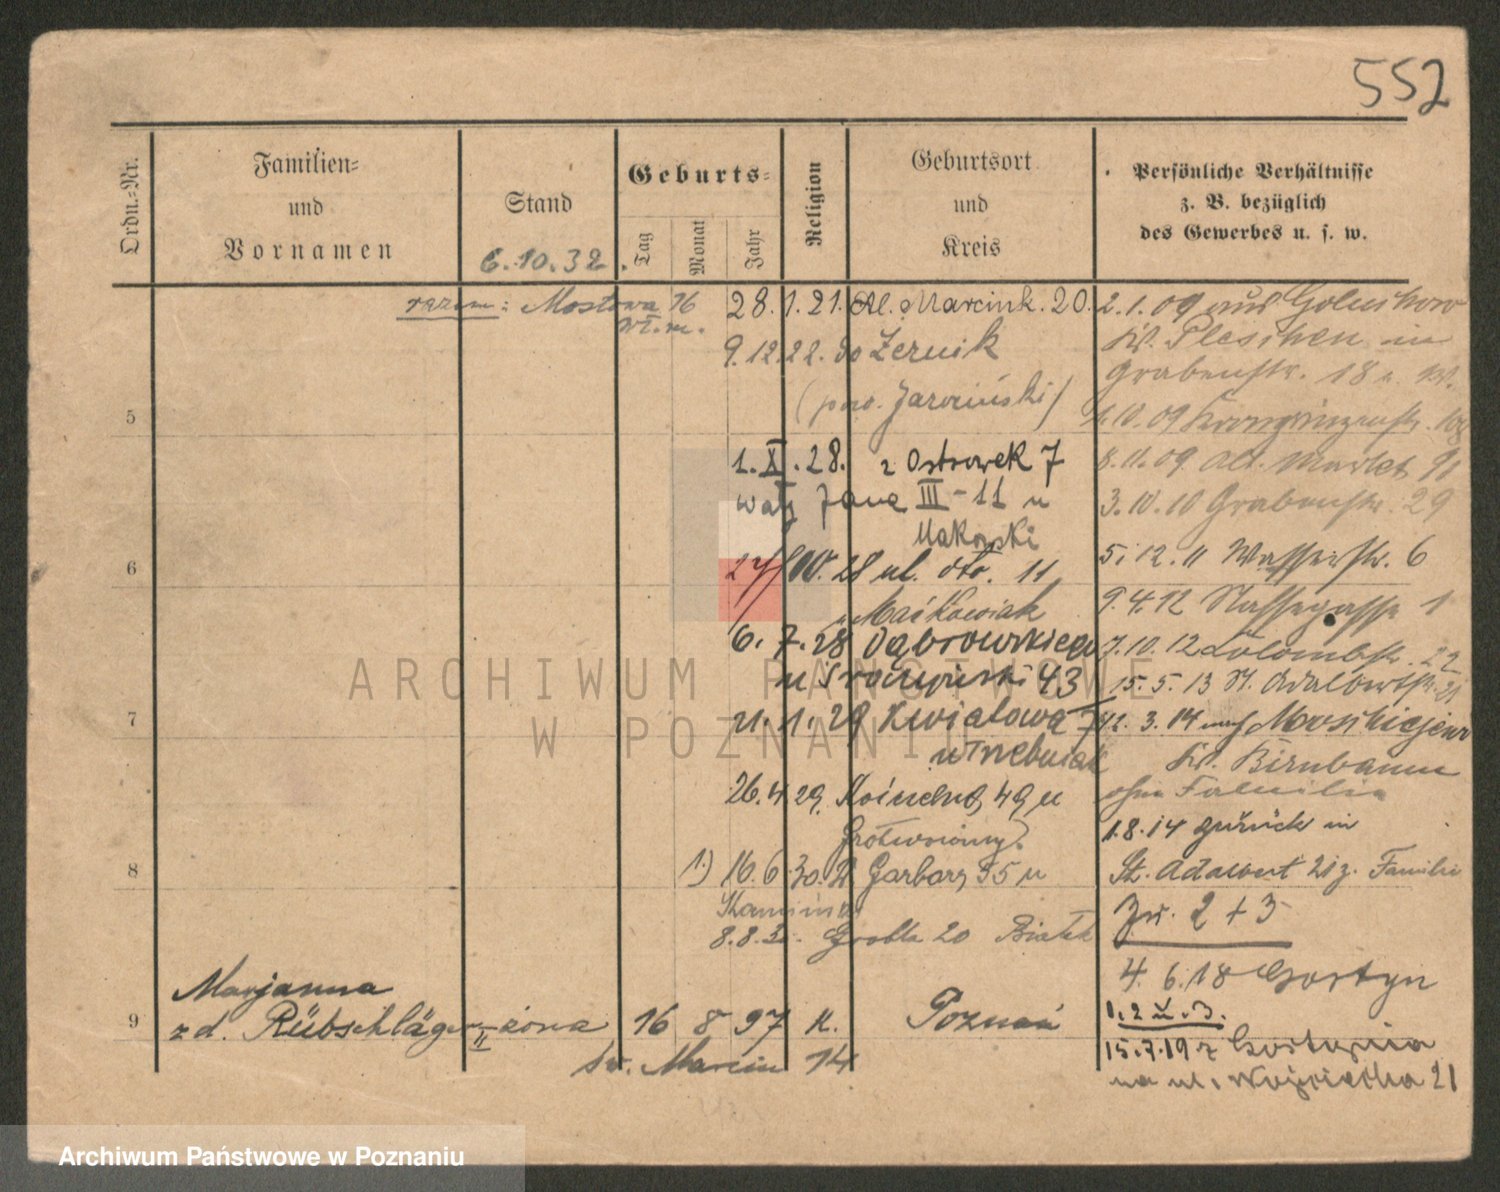 552
Ordn.=Nr.
Familien=
und
Vornamen
Stand
6.10.32.
Geburts=
Tag
Monat
Jahr
Religion
Geburtsort
und
Kreis
Persönliche Verhältnisse
z. B. bezüglich
des Gewerbes u. s. w.
razem: Mostowa 16
28.1.21. Al. Marcink. 20.
9.12.22. do Żernik
(pow. Jarociński)
5
1.X.28. z Ostrowek 7
Jana III-11 u
Makowski
6
28 ul. 11
u Maćkowiak
6.7.28 Dąbrowskiego
43
7
21.1.29 Kwiatowa 7
u Trzebniak
26.4.29. 49 u
8
1) 16.6.30. Garbary 35 u
8.8.3 Grobla 20 Białek
Marjanna
9
zd. Rübschläger II żona 16 8 97 K. Poznań
św. Marcin 14
2.1.09 aus Goluchow
Kr. Pleschen in
Grabenstr. 18
1.10.09 Kronprinzenstr. 108
8.11.09 Alt. Markt 91
3.10.10 Grabenstr. 29
5.12.11 Wasserstr. 6
9.4.12 Nassegasse 1
7.10.12 Colombstr. 22
15.5.13 St. Adalbertstr. 21
12.3.14 nach
Kr. Birnbaum
ohne Familie
1.8.14 zurück in
St. Adalbert 21 z. Familie
Zw. 2 + 3
4.6.18 Gostyn
1.2 u. 3.
15.7.19 z Gostynia
na ul. Wojciecha 21
ARCHIWUM PAŃSTWOWE
W POZNANIU
Archiwum Państwowe w Poznaniu